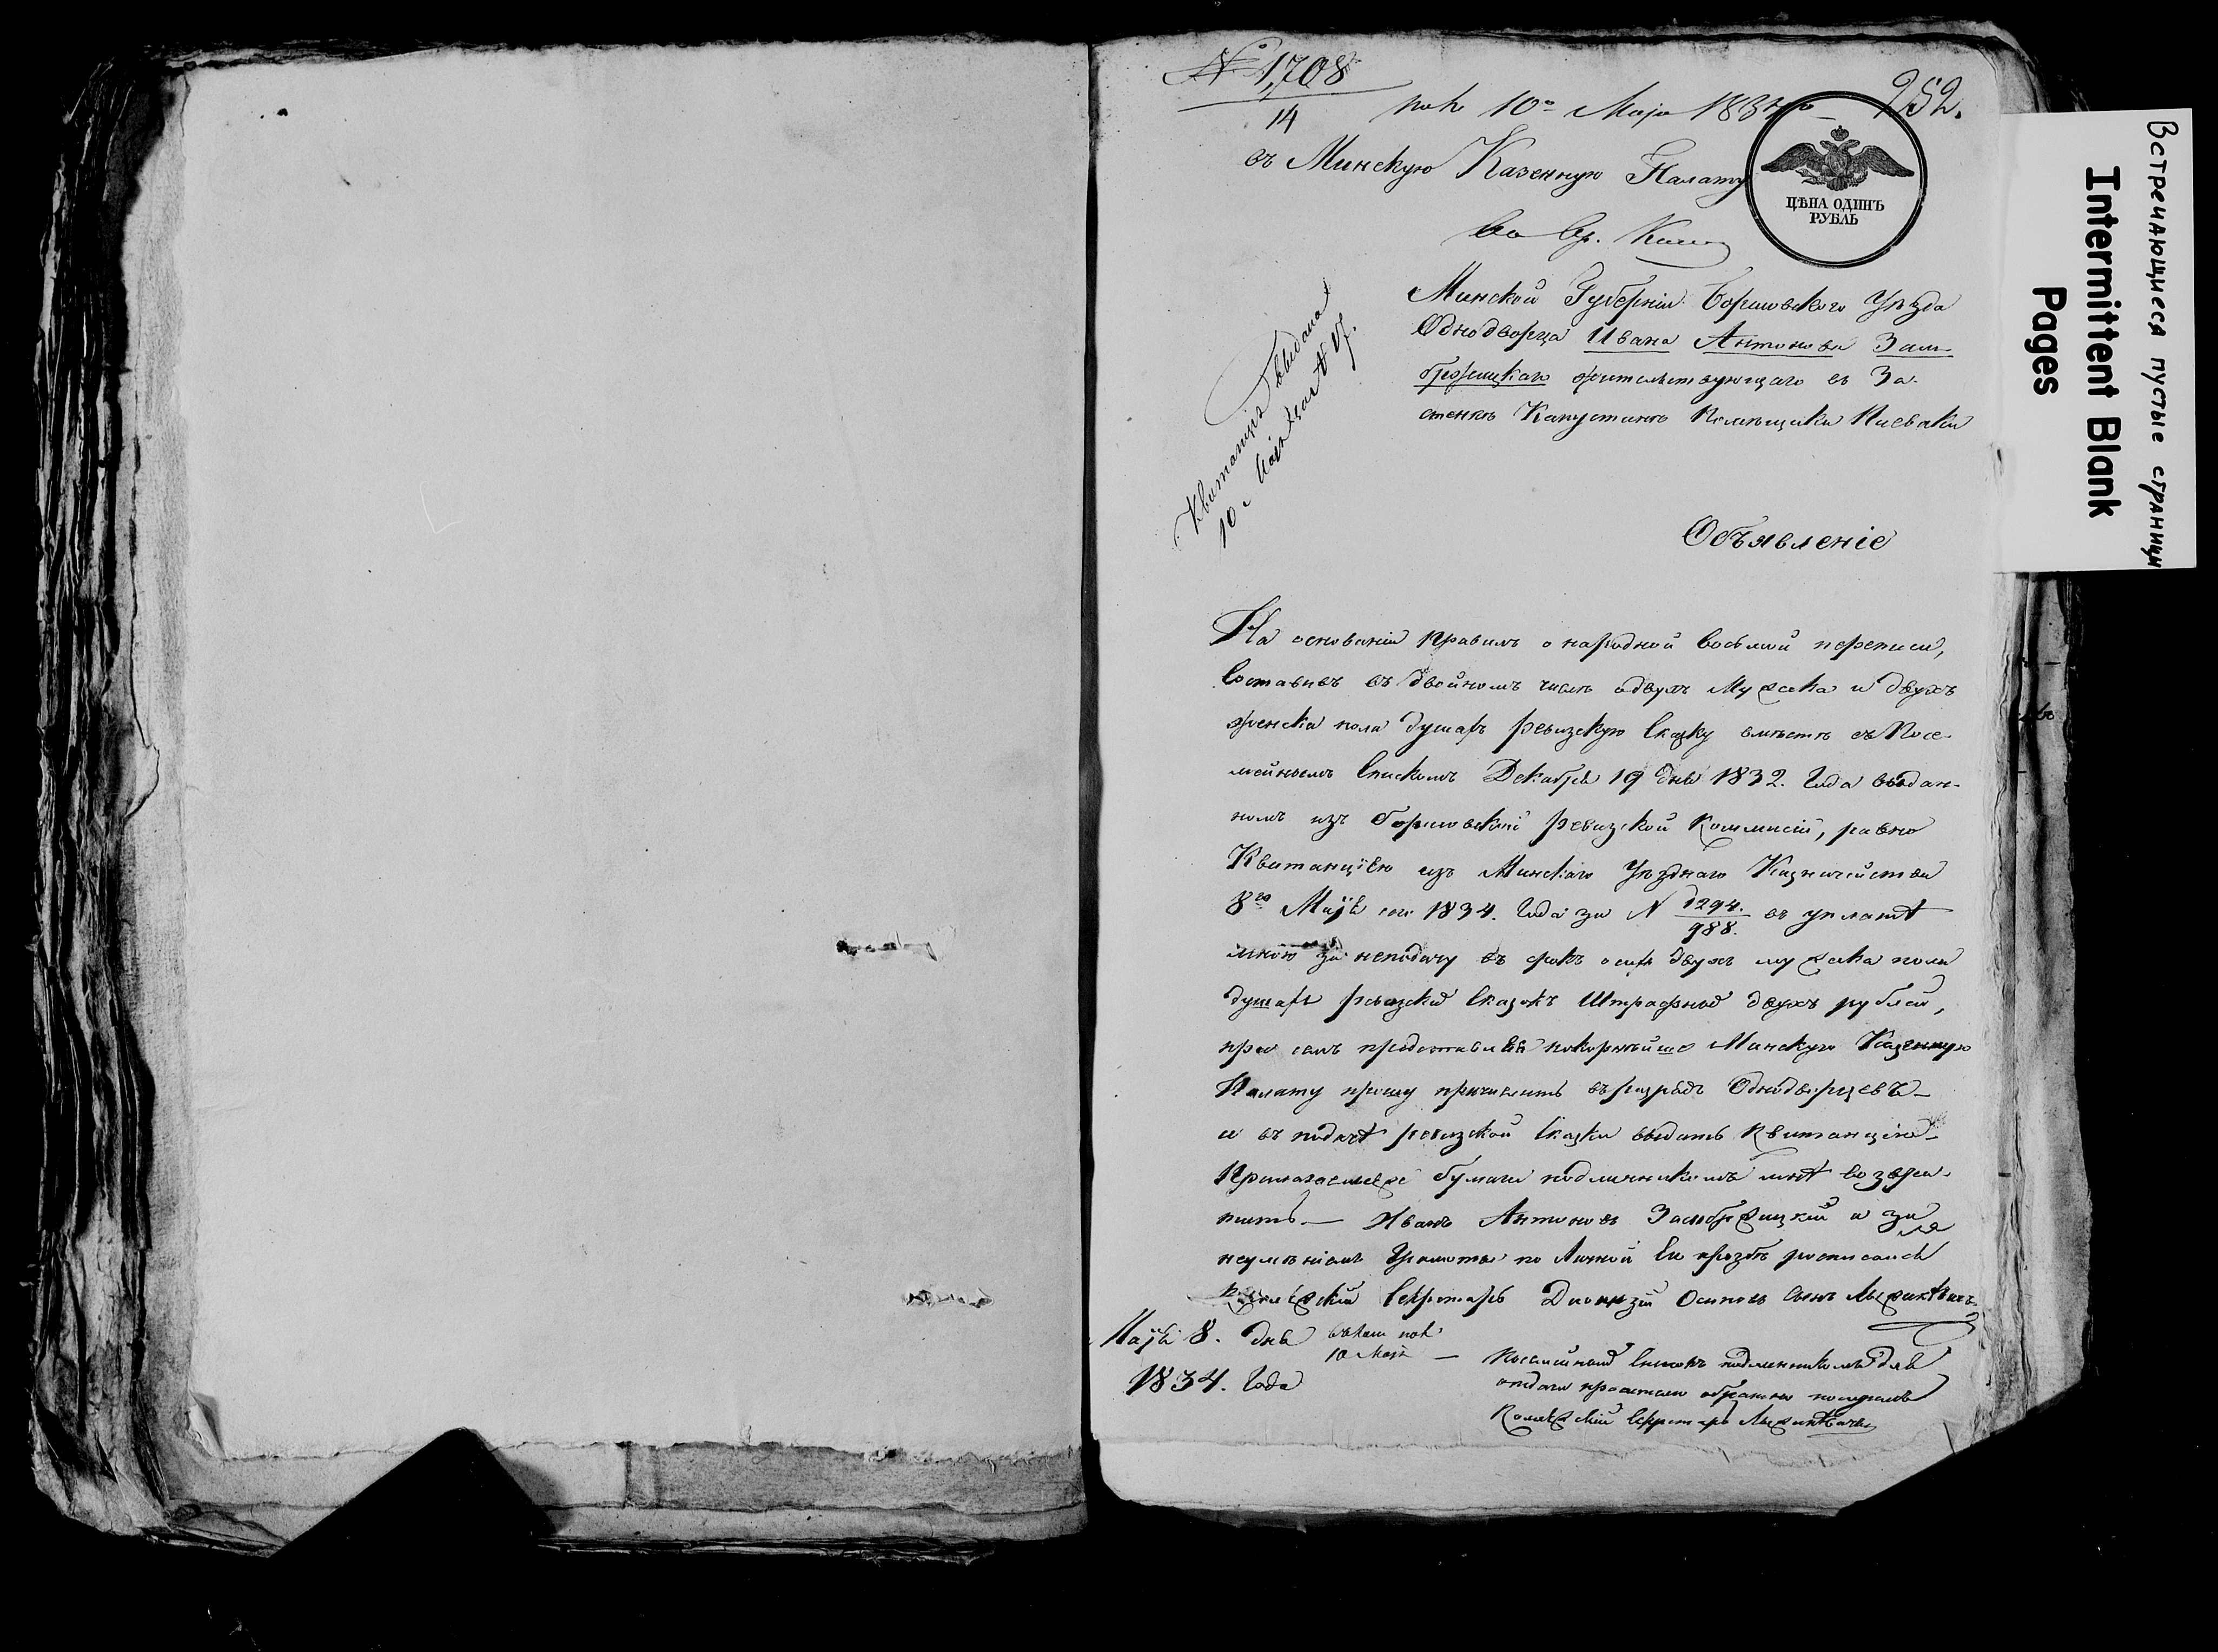 № 1,708
14
пол. 10го Маја 1834го
252.
въ Минскую Казенную Палату
ЦѢНА ОДИНЪ
РУБЛЬ
Минской Губерніи Борисовскаго Уѣзда
Однодворца Ивана Антонова Зам-
бржицкаго жительствующаго въ За-
стенкѣ Капустинѣ Помѣщика
Квитанція выдана
10го Маія
Объявленіе
На основаніи правилъ о народной восьмой переписи,
Составивъ въ двойномъ числѣ о двухъ Мужеска и двухъ
женска пола душахъ ревизскую Сказку вмѣстѣ съ Посе-
мейнымъ Спискомъ Декабря 19 дня 1832. Года выдан-
номъ изъ Борисовской ревизской Коммисіи, равно
Квитанціею изъ Минскаго Уѣзднаго Казначейства
8го Маја сего 1834. Года за N 1294./988. въ уплатѣ
мною за неподачу въ срокъ о сихъ двухъ мужеска пола
душахъ ревизской Сказокъ Штрафныхъ двухъ рублей,
при семъ представляя покорнѣйше Минскую Казенную
Палату прошу причислить въ разрядъ Однодворцевъ
и въ подачѣ ревизской Сказки выдать Квитанцію
Прилагаемые бумаги подлинникомъ мнѣ возвра-
тить. — Иванъ Антоновъ Замбржицкій а за
неумѣніемъ Грамоты по Личной Ея прозбѣ росписался
Колежскій Секретарь Діонизій Осиповъ Сынъ
Маја 8. дня
10 Маја
1834. Года
Посемейный Списокъ подлинникомъ для
отдачи просителю обратно получилъ
Колежскій Секретарь
Встречающиеся пустые страницы
Intermittent Blank
Pages